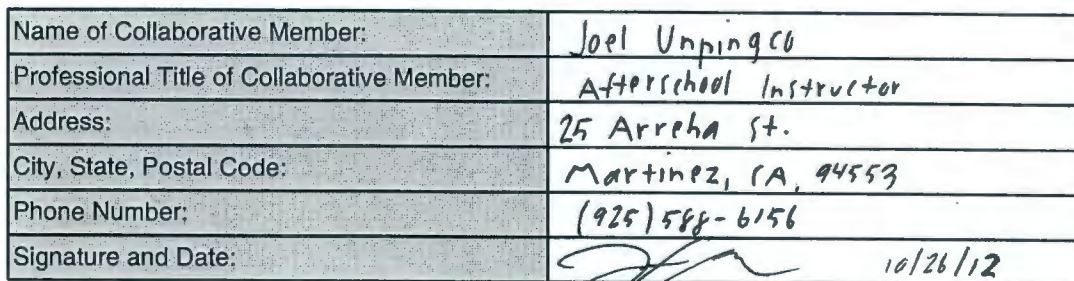 Name of Collaborative Member: Joel Unpingco
Professional Title of Collaborative Member: Afterschool Instructor
Address: 25 Arreha St.
City, State, Postal Code: Martinez, CA, 94553
Phone Number: (925) 588-6156
Signature and Date: 10/26/12